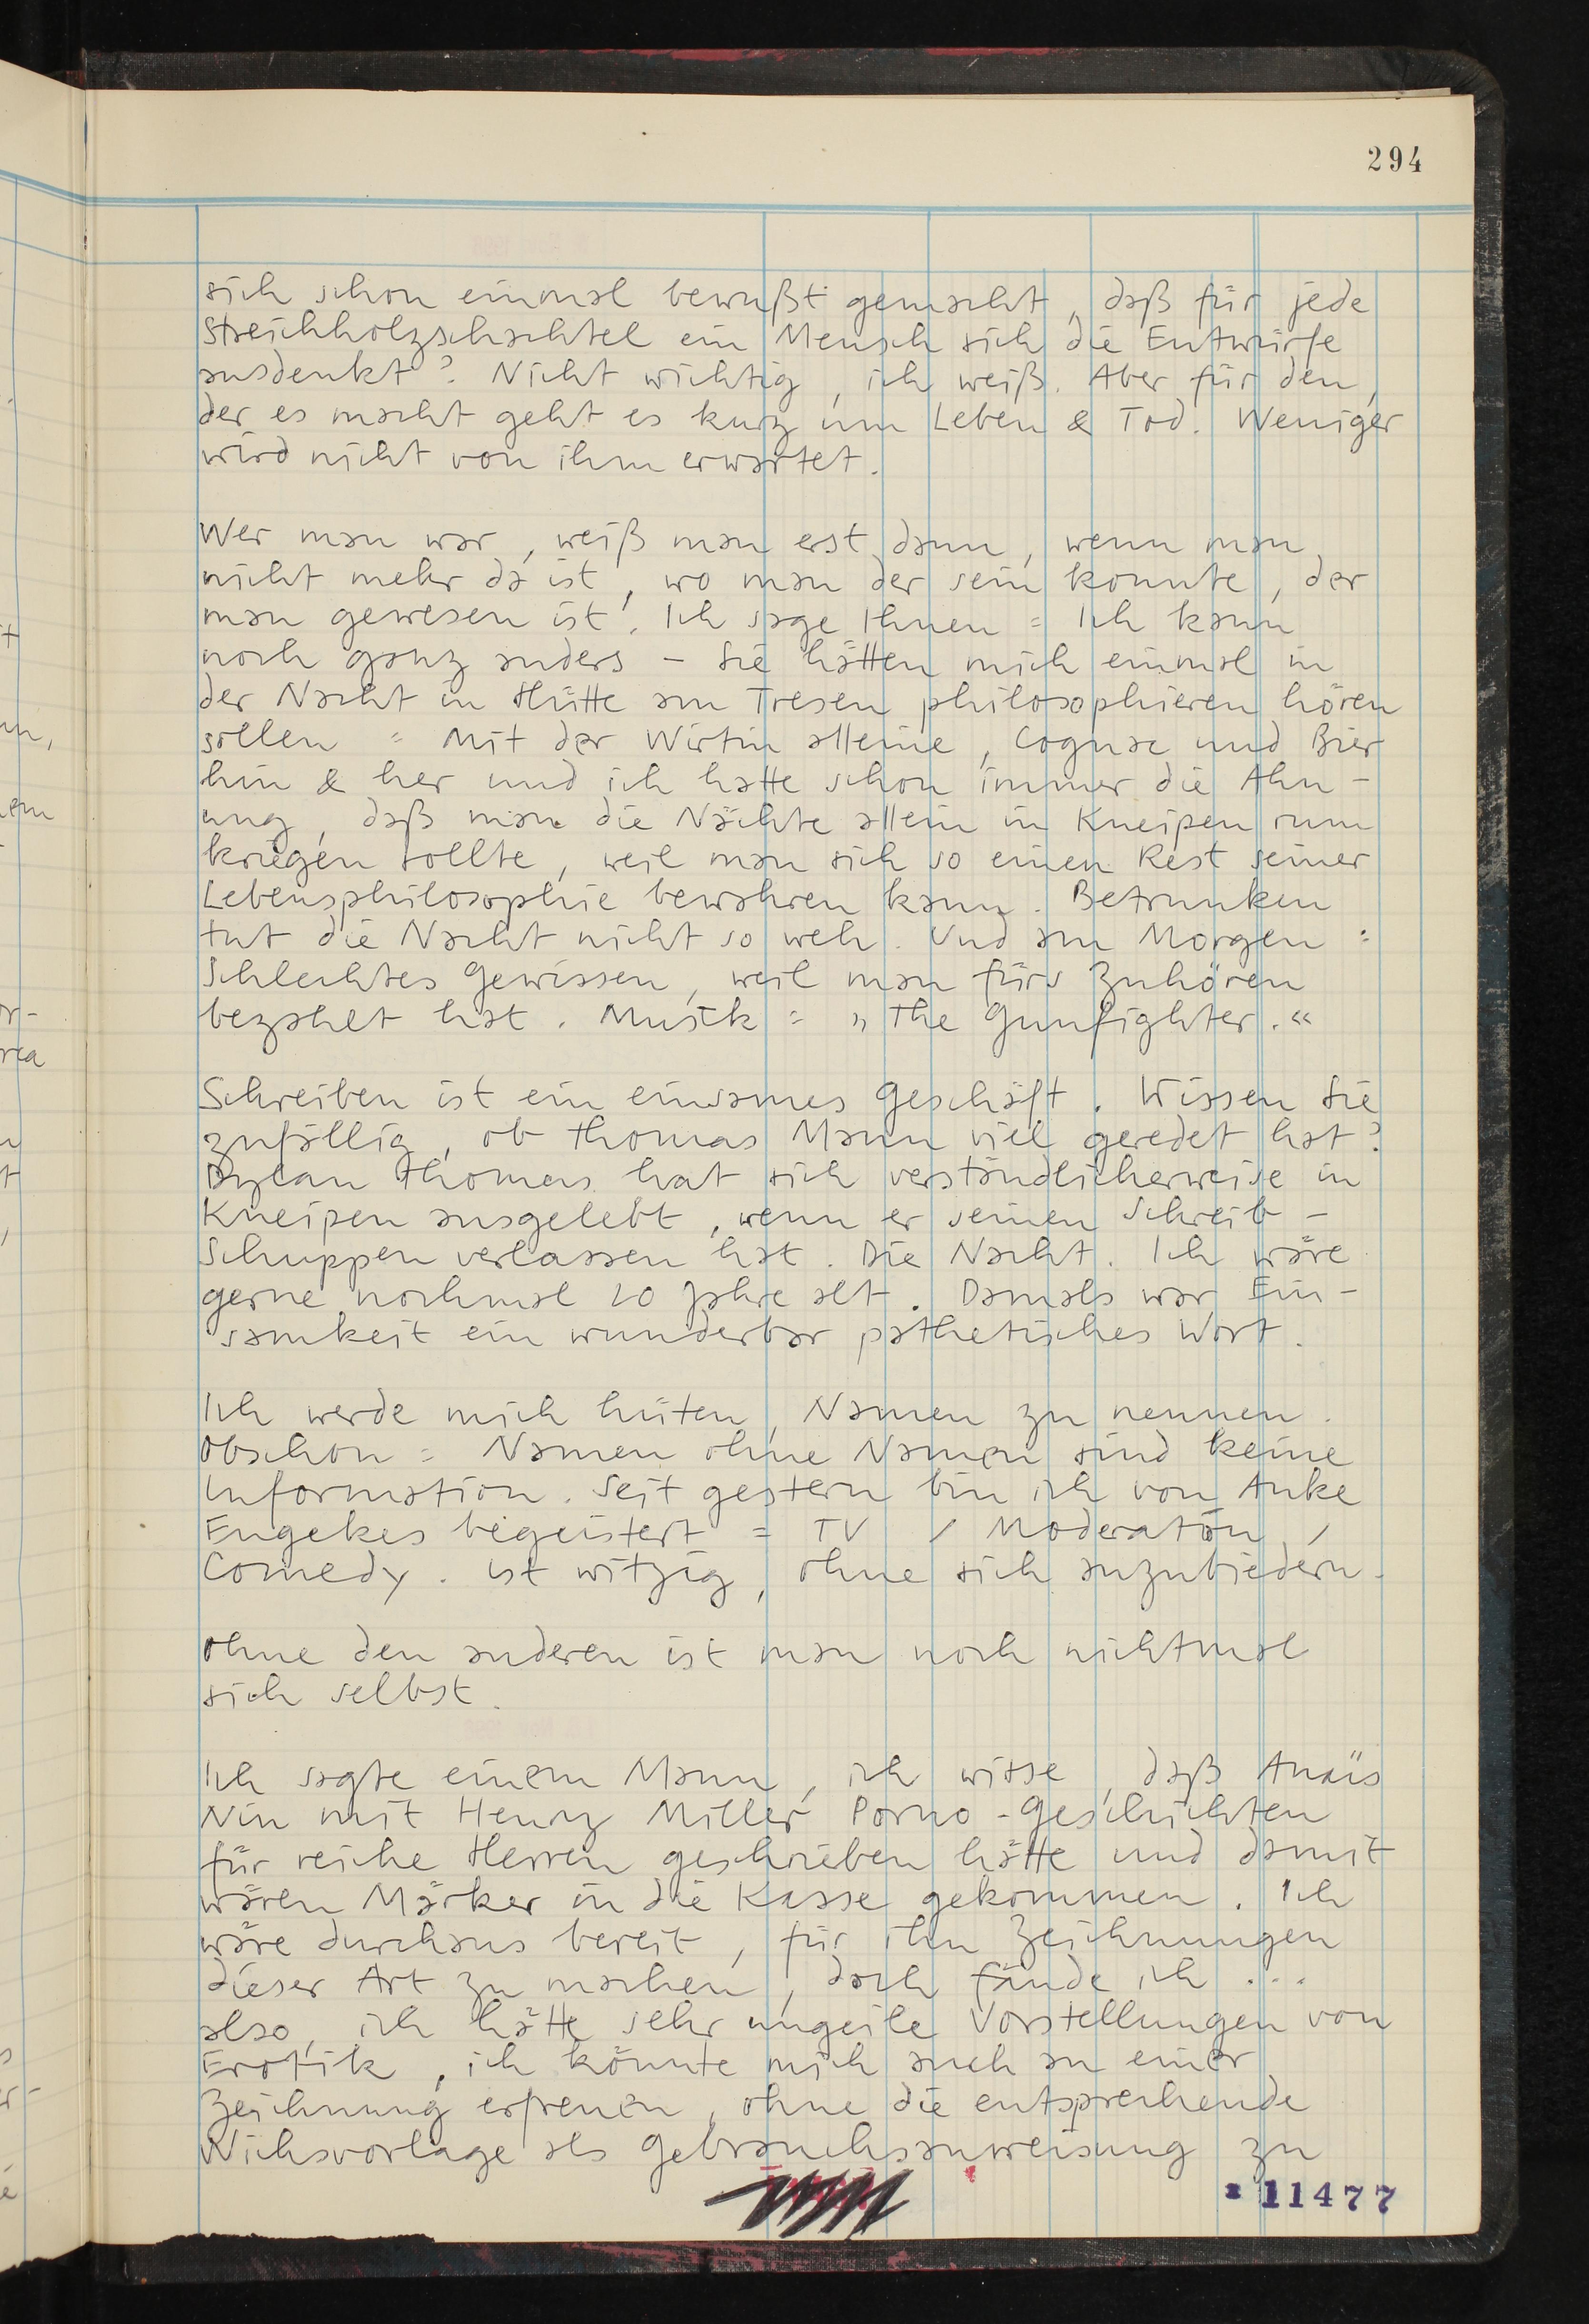 294
sich schon einmal bewußt gemacht, daß für jede
Streichholzschachtel ein Mensch sich die Entwürfe
ausdenkt? Nicht wichtig, ich weiß. Aber für den,
der es macht geht es kurz um Leben & Tod. Weniger
wird nicht von ihm erwartet.
Wer man war, weiß man erst dann, wenn man
nicht mehr da ist, wo man der sein konnte, der
man gewesen ist. Ich sage Ihnen = Ich kann
noch ganz anders – Sie hätten mich einmal in
der Nacht in Hütte am Tresen philosophieren hören
sollen = Mit der Wirtin alleine, Cognac und Bier
hin & her und ich hatte schon immer die Ahn-
ung, daß man die Nächte allein in Kneipen rum
kriegen sollte, weil man sich so einen Rest seiner
Lebensphilosophie bewahren kann. Betrunken
tut die Nacht nicht so weh. Und am Morgen =
Schlechtes Gewissen, weil man fürs Zuhören
bezahlt hat. Musik = „The Gunfighter."
Schreiben ist ein einsames Geschäft. Wissen Sie
zufällig, ob Thomas Mann viel geredet hat?
Dylan Thomas hat sich verständlicherweise in
Kneipen ausgelebt, wenn er seinen Schreib-
Schuppen verlassen hat. Die Nacht. Ich wäre
gerne nochmal 20 Jahre alt. Damals war Ein-
samkeit ein wunderbar pathetisches Wort.
Ich werde mich hüten, Namen zu nennen.
Obschon = Namen ohne Namen sind keine
Information. Seit gestern bin ich von Anke
Engelkes begeistert = TV / Moderatön /
Comedy. ist witzig, ohne sich anzubiedern.
Ohne den anderen ist man noch nichtmal
sich selbst.
Ich sagte einem Mann, ich wisse, daß Anaïs
Nin mit Henry Miller Porno-Geschichten
für reiche Herren geschrieben hätte und damit
wären Märker in die Kasse gekommen. Ich
wäre durchaus bereit, für ihn Zeichnungen
dieser Art zu machen, doch fände ich ...
also, ich hätte sehr ungeile Vorstellungen von
Erotik, ich könnte mich auch an einer
Zeichnung erfreuen, ohne die entsprechende
Wichsvorlage als Gebrauchsanweisung zu
11477